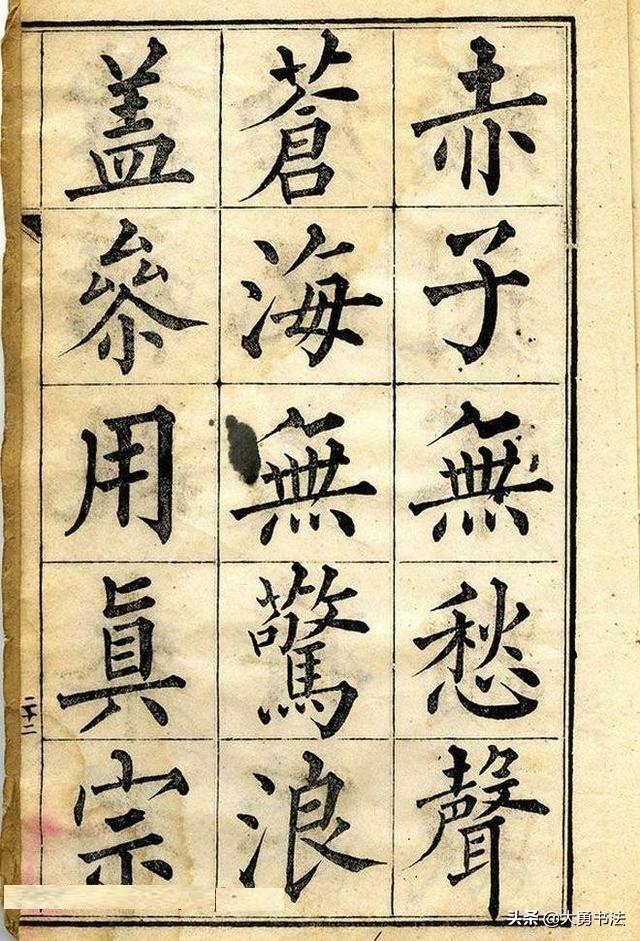 赤子無愁聲
蒼海無驚浪
盖叅用眞宗
二十二
头条@大勇书法